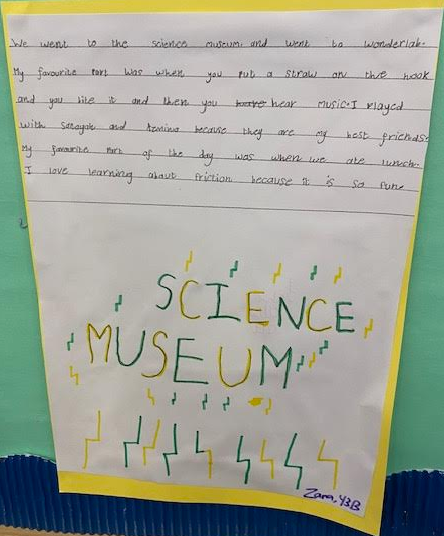 We went to the science museum and went to wonderlab.
My favourite part was when you put a straw on the hook
and you bite it and then you hear music. I played
with and because they are my best friends.
My favourite part of the day was when we ate lunch.
I love learning about friction because it is so fun.
SCIENCE
MUSEUM
Zara, Y3B